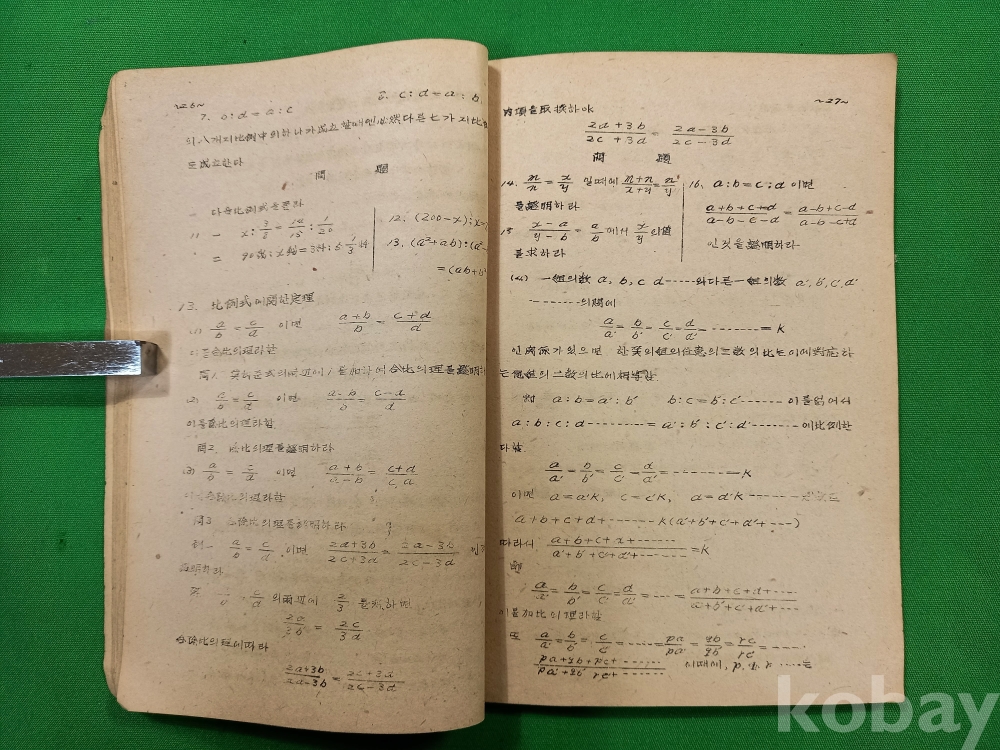 ~26~
6. c : d = a : b,
7. b : d = a : c
의 八개지比例中의하나가成立할때엔必然다른七가지比例
도成立한다
問 題
다음比例式을론라
12. (200-x) : x =
13. (a²+ab) : (a²-
= (ab+b²
13. 比例式에関한定理
(1) a/b = c/d 이면 (a+b)/b = (c+d)/d
合比의理라함
(2) a/b = c/d 이면 (a-b)/b = (c-d)/d
이를 比의理라함
問2. 比의理를證明하라
(3) a/b = c/d 이면 (a+b)/(a-b) = (c+d)/(c-d)
比의理라함
問3 合除比의理를證明하라
例一 a/b = c/d 이면 (2a+3b)/(2c+3d) = (2a-3b)/(2c-3d)
證明하라
a/b = c/d 의兩辺에 2/3 를乘하면
2a/3b = 2c/3d
合除比의理에따라
(2a+3b)/(2a-3b) = (2c+3d)/(2c-3d)
~27~
内項을取換하야
(2a+3b)/(2c+3d) = (2a-3b)/(2c-3d)
問 題
14. m/n = x/y 일때에 (m+n)/(x+y) = n/y
를證明하라
15 (x-a)/(y-b) = a/b 에서 x/y 의値
를求하라
16. a : b = c : d 이면
(a+b+c+d)/(a-b-c-d) = (a-b+c-d)/(a-b-c+d) =
인것을證明하라
(4) 一組의数 a, b, c d ----- 와다른一組의数 a', b', c', d'
-------- 의間에
a/a' = b/b' = c/c' = d/d' -------- = K
인関係가있으면 한쪽의組의任意의二数의比는이에対応하
는他組의二数의比에相等함
a : b = a' : b' b : c = b' : c' ------ 이를읽어서
a : b : c : d -------- = a' : b' : c' : d' ------ 에比例한
다함
a/a' = b/b' = c/c' = d/d' = -------- K
이면 a = a'K, c = c'K, d = d'K ------
a+b+c+d+ ------- K(a'+b'+c'+d'+---)
따라서 (a+b+c+d+------)/(a'+b'+c'+d'+------) = K
a/a' = b/b' = c/c' = d/d' = ---- = (a+b+c+d+----)/(a'+b'+c'+d'+----)
이를加比의理라함
또 a/a' = b/b' = c/c' = ----- pa/pa' = qb/qb' = rc/rc' = -----
(pa+qb+rc+------)/(pa'+qb'+rc'+------) 이때에, p. q. r ----는
kobay